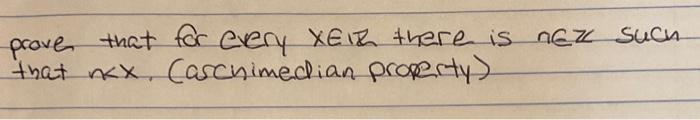 prove that for every x∈ℝ there is n∈ℤ such
that n<x. (archimedian property)